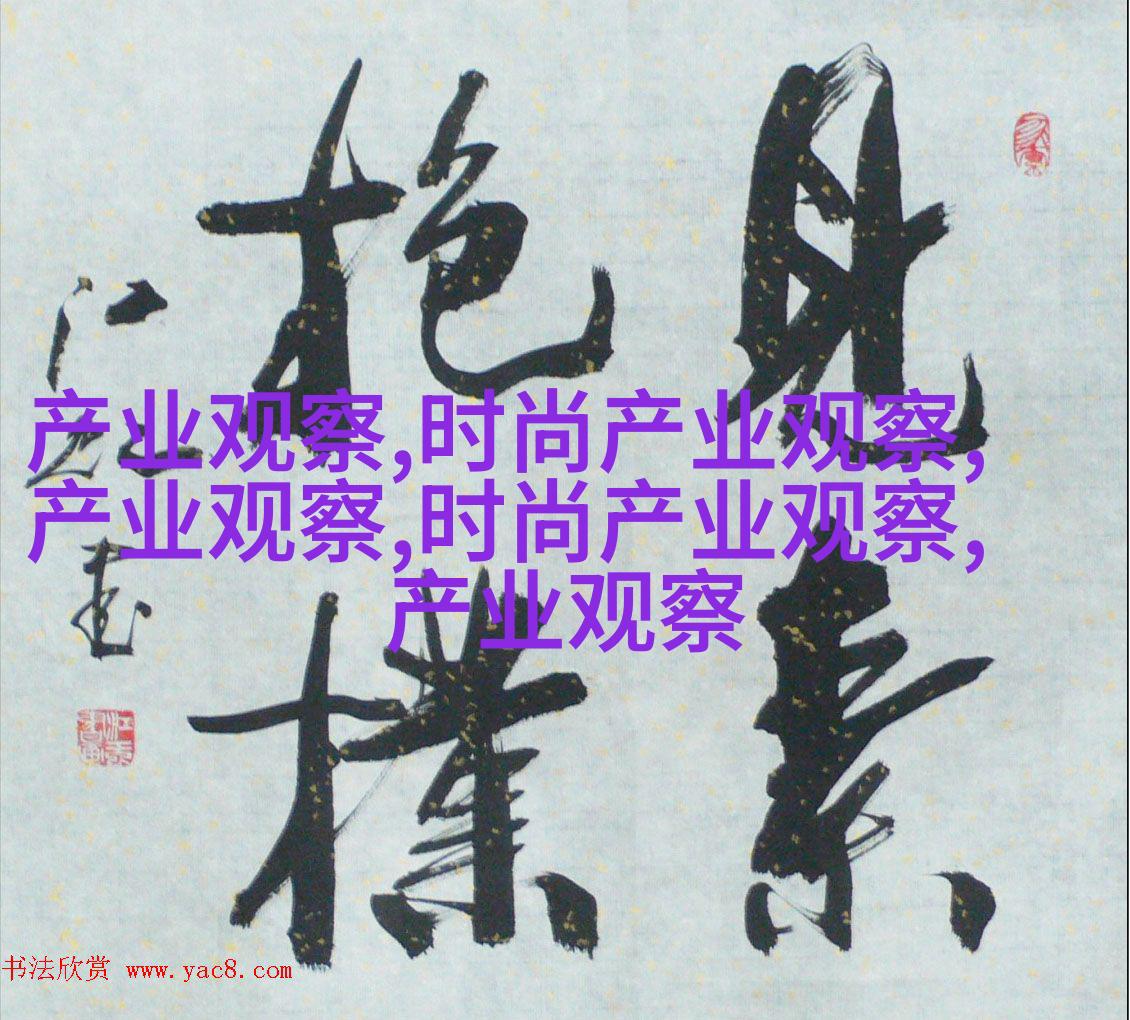 見素
抱樸
江玄書
产业观察,时尚产业观察,
产业观察,时尚产业观察,
产业观察
书法欣赏 www.yac8.com